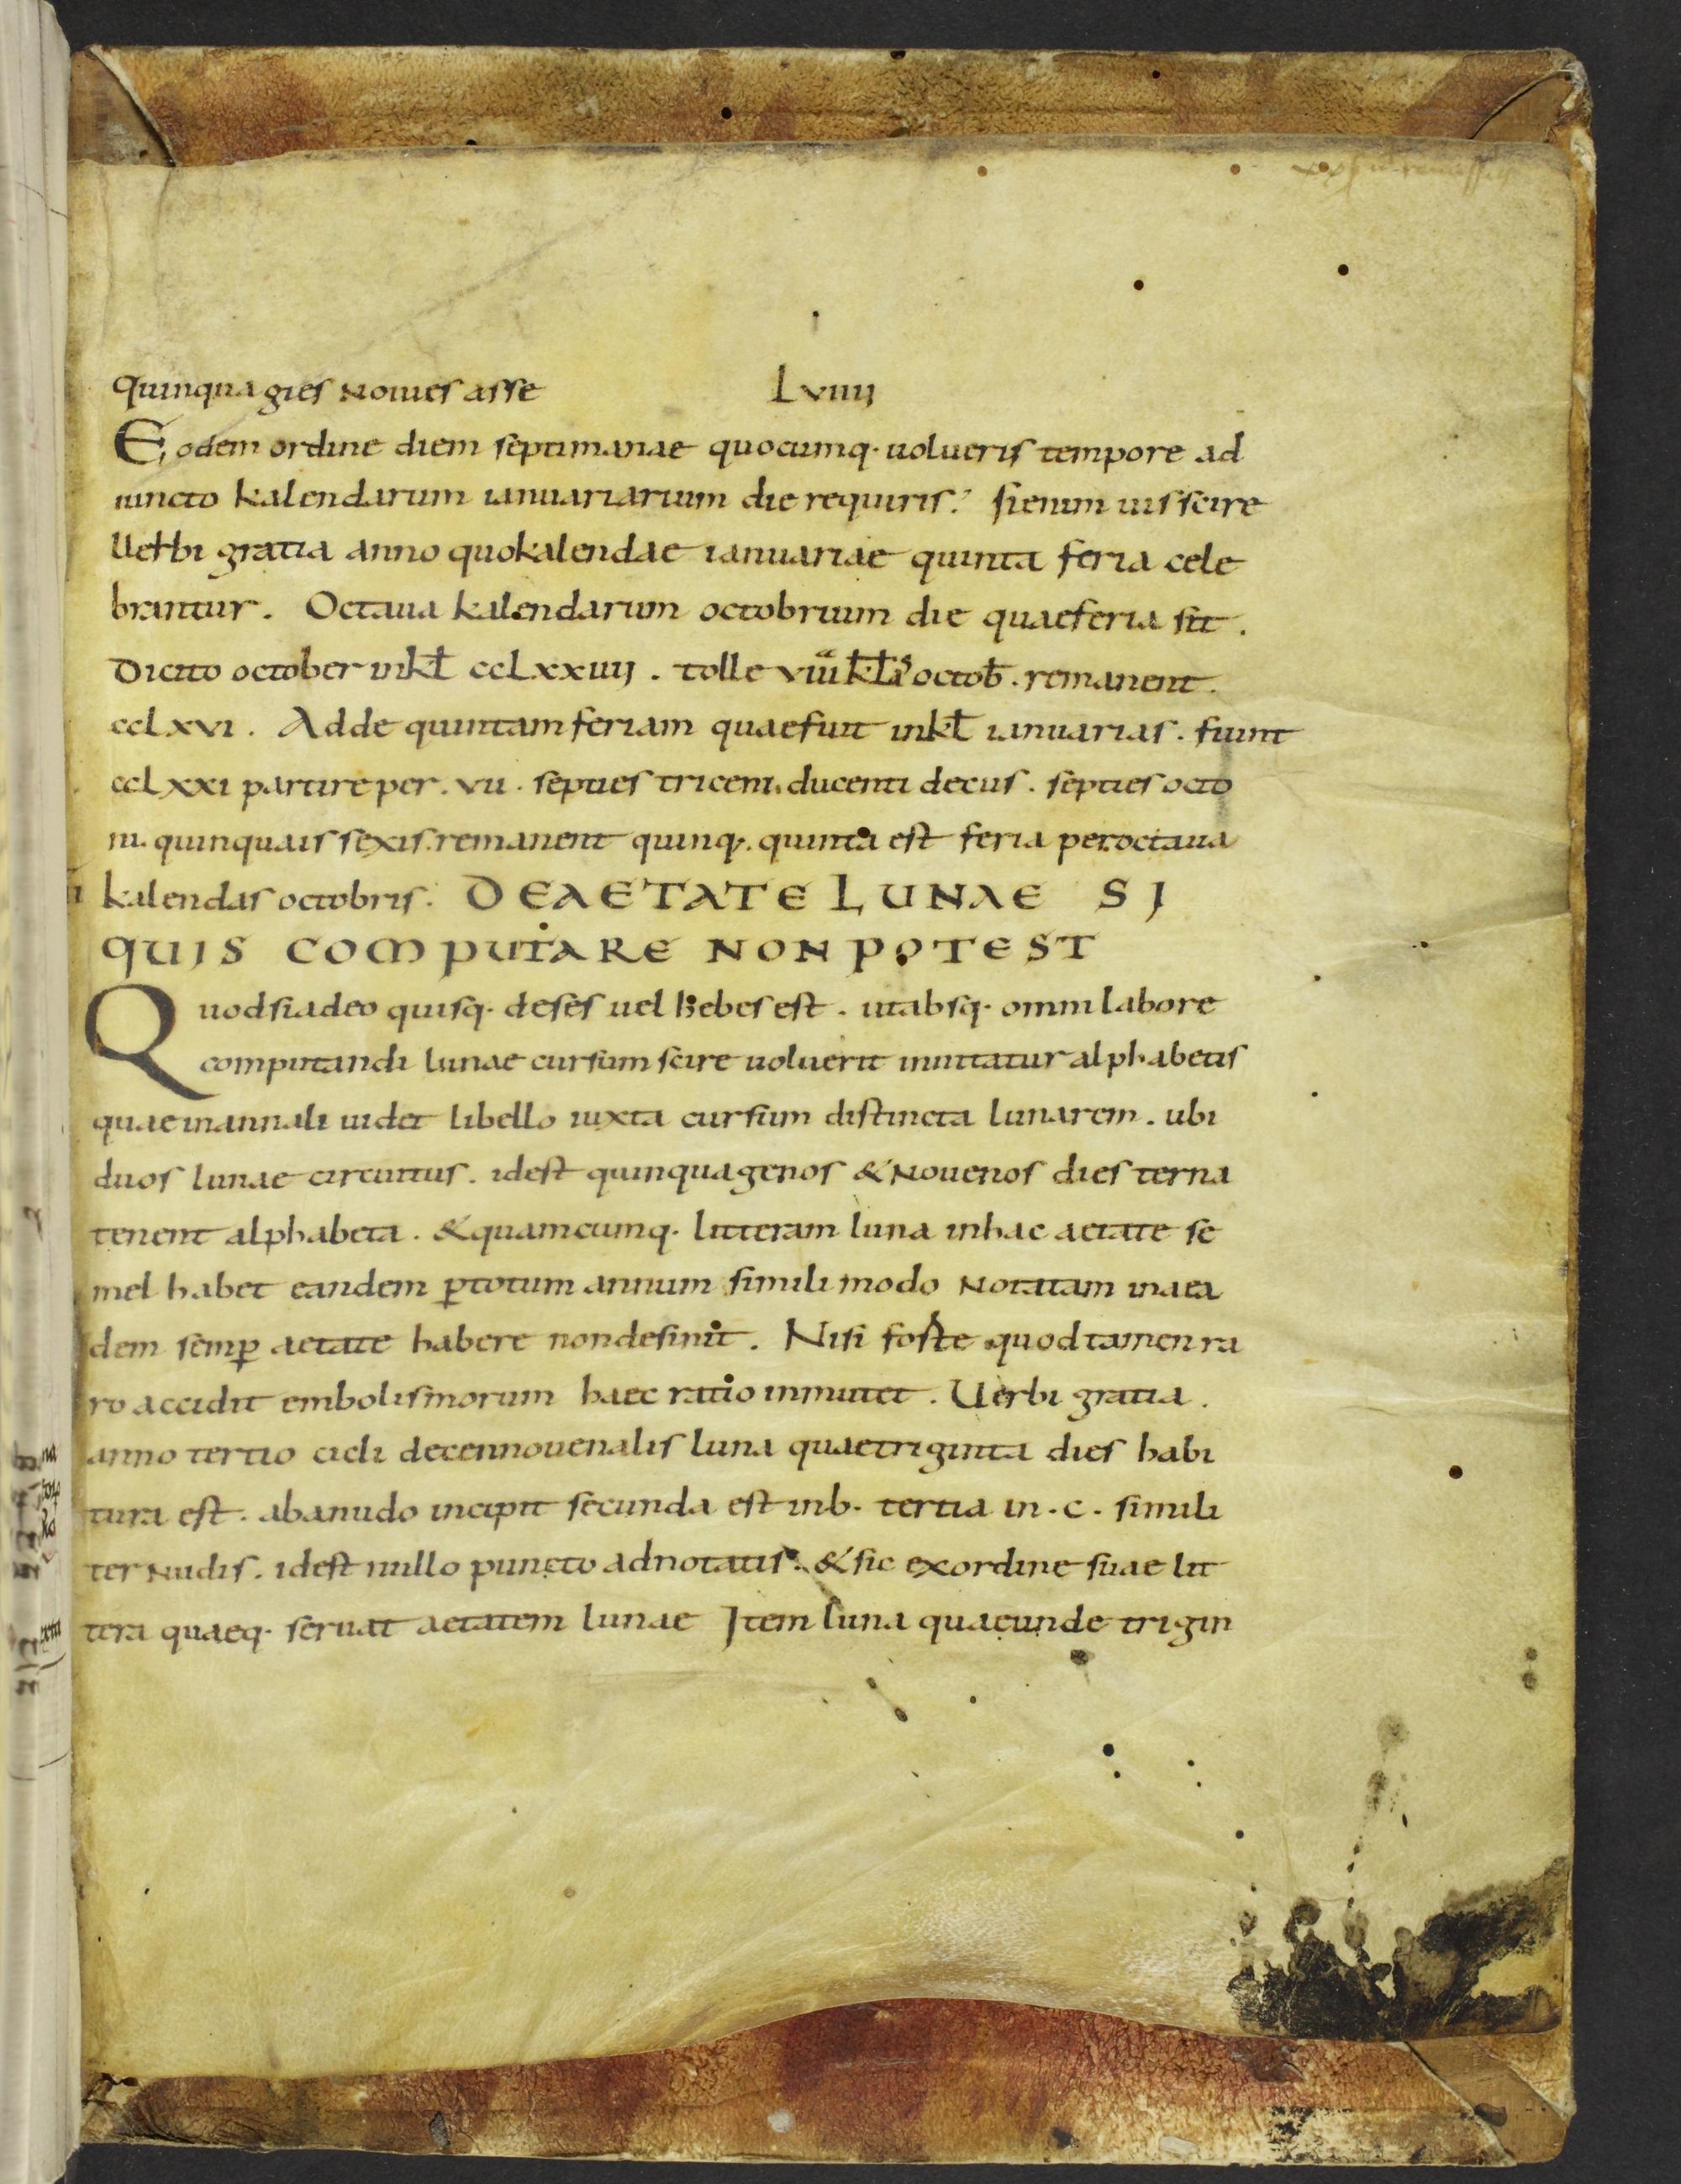 quinquagies nouies asse Lviiii
Eodem ordine diem septimanae quocumq· uolueris tempore ad
iuncto kalendarum ianuariarum die requiris: si enim uis scire
Uerbi gratia anno quo kalendae ianuariae quinta feria cele
brantur. Octaua kalendarum octobrium die quae feria sit.
Dicito october in kł ccLxxiiii. tolle viii kł octob̄. remanent.
ccLxvi. Adde quintam feriam quae fuit in kł ianuarias. fiunt
ccLxxi partire per. vii. septies triceni. ducenti decus. septies octo
ni. quinquais sexis. remanent quinq·. quinta est feria per octaua
kalendas octobris. DE AETATE LUNAE SI
QUIS COMPUTARE NON POTEST
Quod si adeo quisq· deses uel hebes est. ut absq· omni labore
computandi lunae cursum scire uoluerit innitatur alphabetis
quae in annali uidet libello iuxta cursum distincta lunarem. ubi
duos lunae circuitus. id est quinquagenos & nouenos dies terna
tenent alphabeta. & quamcumq· litteram luna in hac aetate se
mel habet eandem p̱ totum annum simili modo notatam in aea
dem semp̱ aetate habere non desinit. Nisi forte quod tamen ra
ro accidit embolismorum haec ratio inmutet. Uerbi gratia.
anno tertio cicli decennouenalis luna quae triginta dies habi
tura est. ab a nudo incipit secunda est in b. tertia in. c. simili
ter nudis. id est nullo puncto adnotatis. & sic ex ordine suae lit
tera quaeq· seruat aetatem lunae Item luna quae unde trigin